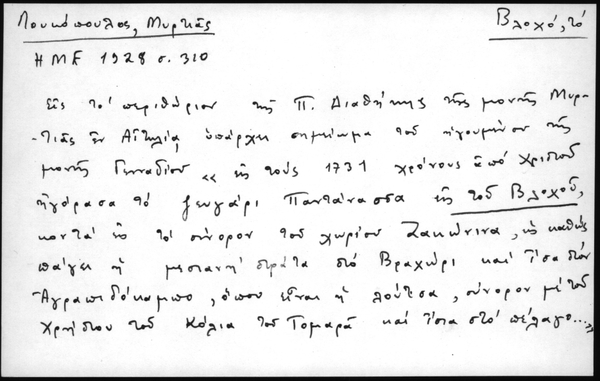 Λουκόπουλος, Μυρτιᾶς
Βλοχό, τό
ΗΜΕ 1928 σ. 310
Εἰς τό περιθώριον τῆς Π. Διαθήκης τῆς μονῆς Μυρ-
-τιᾶς ἐν Αἰτωλίᾳ, ὑπάρχει σημείωμα τοῦ ἡγουμένου τῆς
μονῆς Γενναδίου " εἰς τούς 1731 χρόνους ἀπό χριστοῦ
ἠγόρασα τό ζευγάρι Παντάνασσα εἰς τοῦ Βλοχοῦ,
κοντά εἰς τό σύνορον τοῦ χωρίου Ζακώνινα, ὡς καθώς
πάγει ἡ μεσιανή στράτα στό Βραχώρι καί ἴσα στόν
Ἀγραπιδόκαμπο, ὁπου εἶναι ἡ λούτσα, σύνορον μέ τοῦ
Χρήστου τοῦ Κόλια τοῦ Τομαρᾶ καί ἴσια στό πέλαγο..."